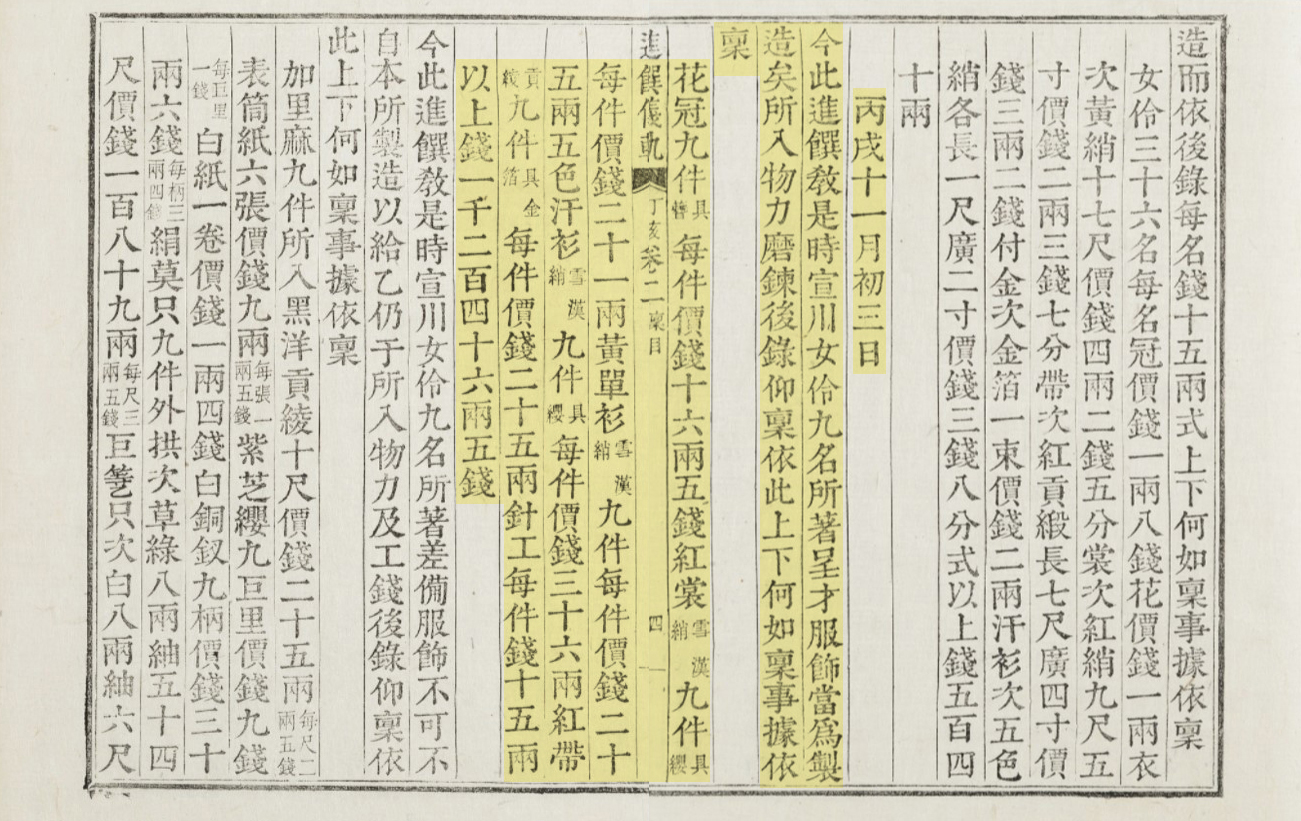 造而依後錄每名錢十五兩式上下何如稟事據依稟
女伶三十六名每名冠價錢一兩八錢花價錢一兩衣
次黃綃十七尺價錢四兩二錢五分裳次紅綃九尺五
寸價錢二兩三錢七分帶次紅貢緞長七尺廣四寸價
錢三兩二錢付金次金箔一束價錢二兩汗衫次五色
綃各長一尺廣二寸價錢三錢八分式以上錢五百四
十兩
丙戌十一月初三日
今此進饌敎是時宣川女伶九名所著呈才服飾當爲製
造矣所入物力磨鍊後錄仰稟依此上下何如稟事據依
稟
花冠九件具簪每件價錢十六兩五錢紅裳雪漢綃九件具纓
進饌儀軌 丁亥 卷二 稟目 四
每件價錢二十一兩黃單衫雪漢綃九件每件價錢二十
五兩五色汗衫雪漢綃九件具纓每件價錢三十六兩紅帶
貢綾九件具金箔每件價錢二十五兩針工每件錢十五兩
以上錢一千二百四十六兩五錢
今此進饌敎是時宣川女伶九名所著差備服飾不可不
自本所製造以給乙仍于所入物力及工錢後錄仰稟依
此上下何如稟事據依稟
加里麻九件所入黑洋貢綾十尺價錢二十五兩每尺二兩五錢
表筒紙六張價錢九兩每張一兩五錢紫芝纓九叵里價錢九錢
每叵里一錢白紙一卷價錢一兩四錢白銅釵九柄價錢三十
兩六錢每柄三兩四錢絹莫只九件外拱次草綠八兩紬五十四
尺價錢一百八十九兩每尺三兩五錢叵㐓只次白八兩紬六尺